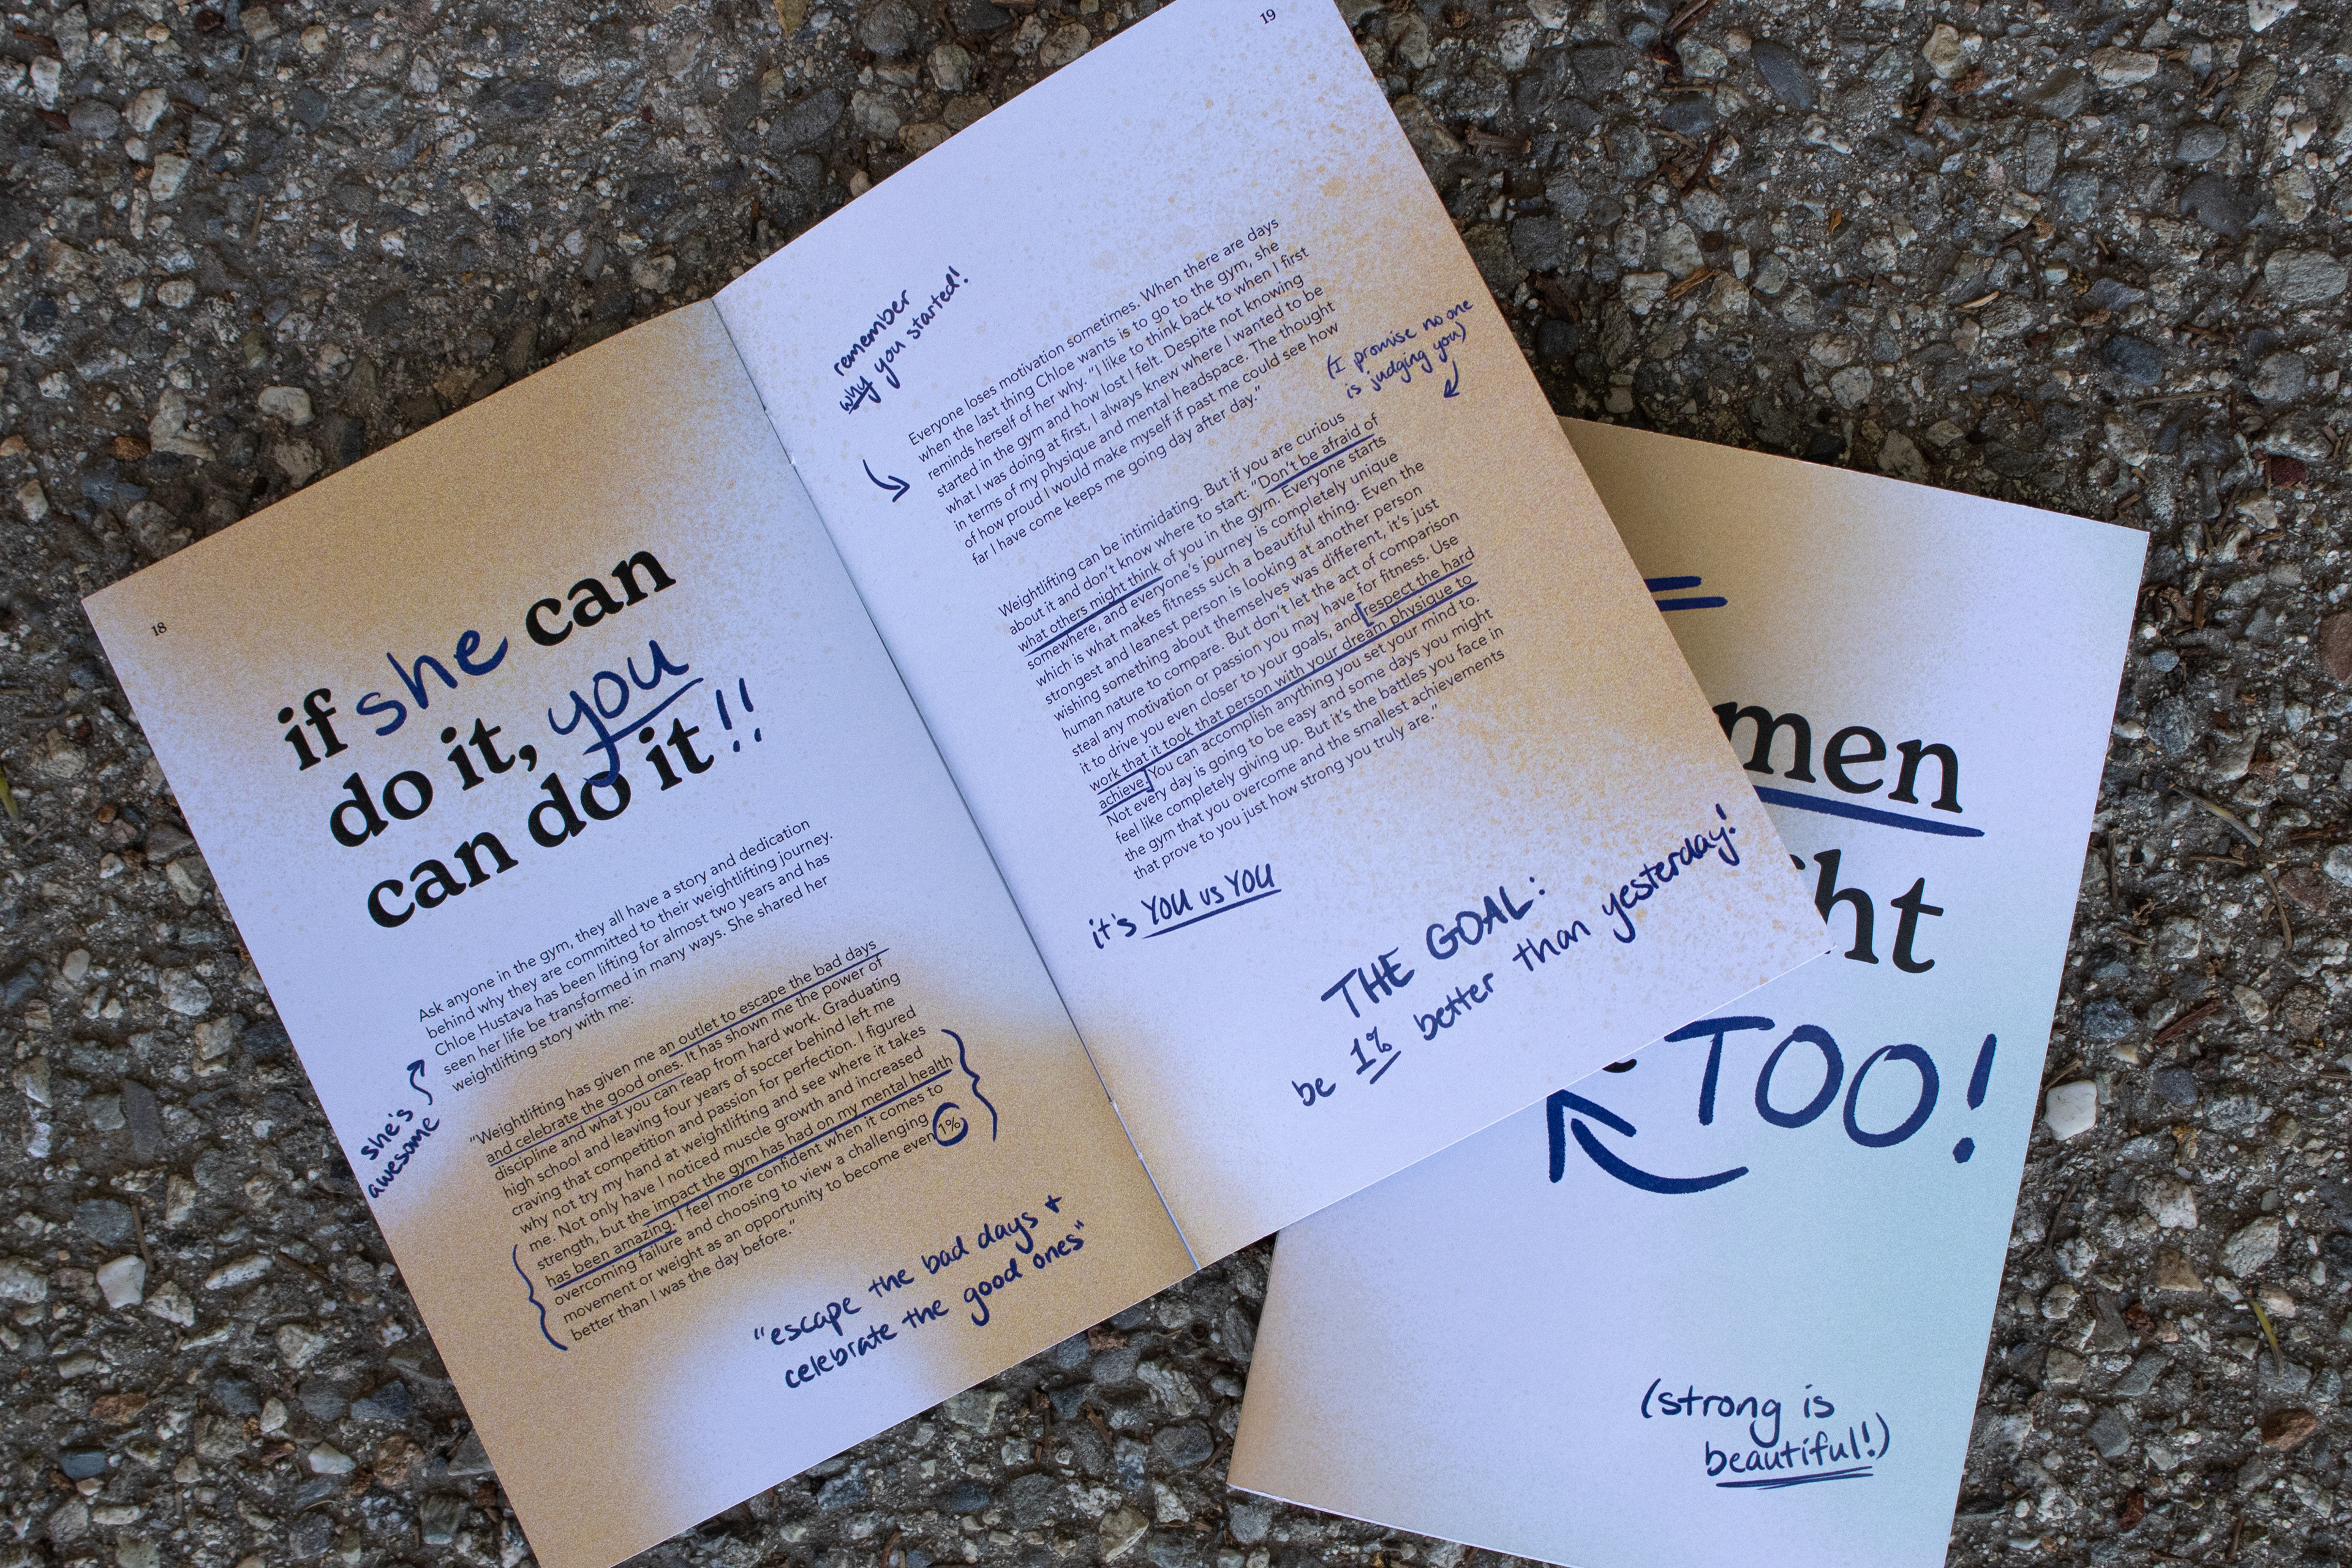 18
if she can
do it, you
can do it!!
Ask anyone in the gym, they all have a story and dedication
behind why they are committed to their weightlifting journey.
Chloe Hustava has been lifting for almost two years and has
seen her life be transformed in many ways. She shared her
weightlifting story with me:
she's
awesome
"Weightlifting has given me an outlet to escape the bad days
and celebrate the good ones. It has shown me the power of
discipline and what you can reap from hard work. Graduating
high school and leaving four years of soccer behind left me
craving that competition and passion for perfection. I figured
why not try my hand at weightlifting and see where it takes
me. Not only have I noticed muscle growth and increased
strength, but the impact the gym has had on my mental health
has been amazing. I feel more confident when it comes to
overcoming failure and choosing to view a challenging
movement or weight as an opportunity to become even 1%
better than I was the day before."
"escape the bad days +
celebrate the good ones"
19
remember
why you started!
Everyone loses motivation sometimes. When there are days
when the last thing Chloe wants is to go to the gym, she
reminds herself of her why. "I like to think back to when I first
started in the gym and how lost I felt. Despite not knowing
what I was doing at first, I always knew where I wanted to be
in terms of my physique and mental headspace. The thought
of how proud I would make myself if past me could see how
far I have come keeps me going day after day."
(I promise no one
is judging you)
Weightlifting can be intimidating. But if you are curious
about it and don't know where to start: "Don't be afraid of
what others might think of you in the gym. Everyone starts
somewhere, and everyone's journey is completely unique
which is what makes fitness such a beautiful thing. Even the
strongest and leanest person is looking at another person
wishing something about themselves was different, it's just
human nature to compare. But don't let the act of comparison
steal any motivation or passion you may have for fitness. Use
it to drive you even closer to your goals, and [respect the hard
work that it took that person with your dream physique to
achieve.] You can accomplish anything you set your mind to.
Not every day is going to be easy and some days you might
feel like completely giving up. But it's the battles you face in
the gym that you overcome and the smallest achievements
that prove to you just how strong you truly are."
it's YOU vs YOU
THE GOAL:
be 1% better than yesterday!
men
ht
TOO!
(strong is
beautiful!)